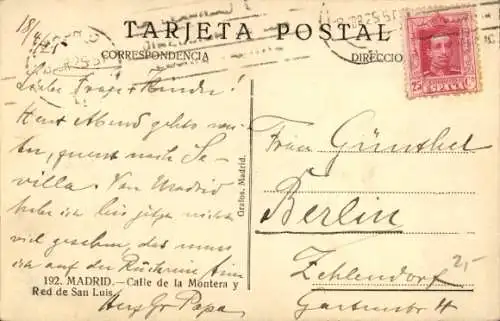 18/4/25
TARJETA POSTAL
CORRESPONDENCIA
DIRECCIO
25 ESPAÑA Cs
Liebe Kinder!
Heut Abend gehts weiter, zuerst nach Sevilla. Von Madrid
habe ich bis jetzt nicht
viel gesehen, das muss
ich auf der Rückreise
Herzl Gr Papa
Grafos. Madrid.
192. MADRID.—Calle de la Montera y
Red de San Luis.
Frau Günthel
Berlin
Zehlendorf
Gartenstr 4
2,-